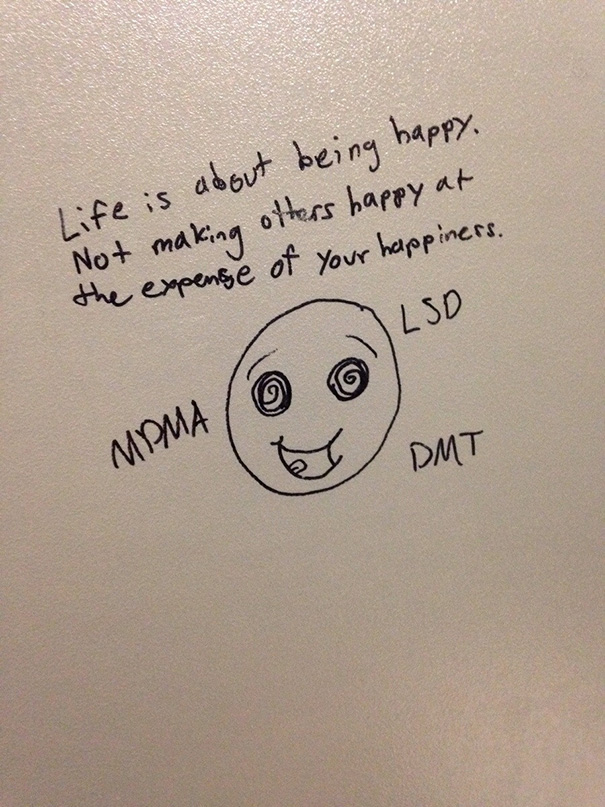 Life is about being happy.
Not making others happy at
the expense of your happiness.
LSD
MDMA
DMT